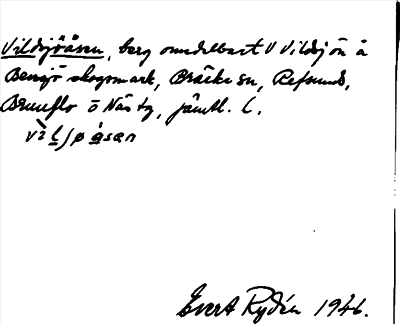 Vildsjöåsen, berg omedelbart V Vildsjön å
Bensjö skogsmark, Bräcke sn, Refsunds,
Brunflo o Näs tg, Jämtl. l.
vìlsjøåsen
Evert Rydén 1946.